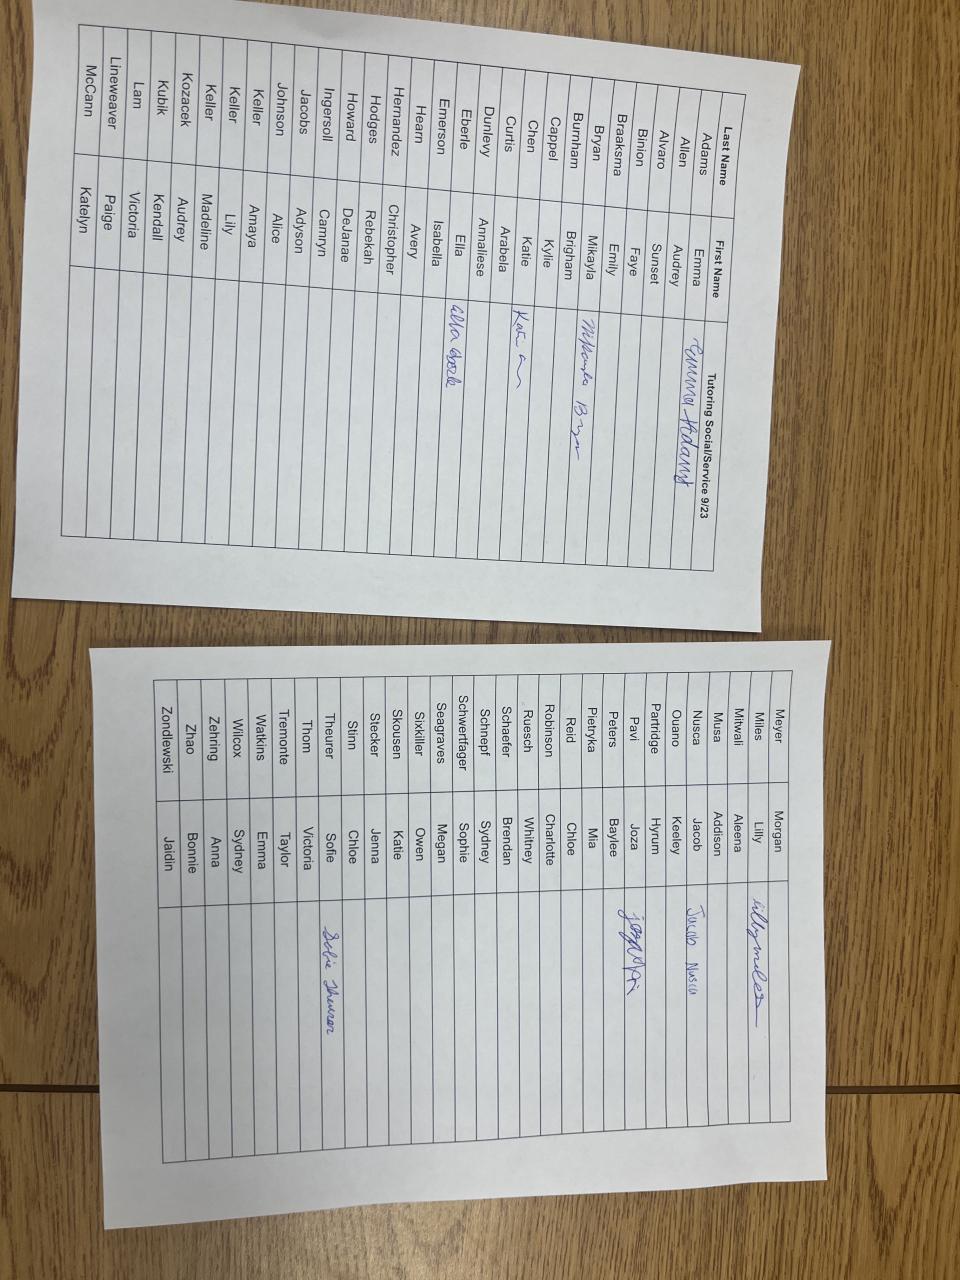 Last Name First Name Tutoring Social/Service 9/23
Adams Emma Emma Adams
Allen Audrey
Alvaro Sunset
Binion Faye
Braaksma Emily
Bryan Mikayla Mikayla Bryan
Burnham Brigham
Cappel Kylie
Chen Katie Katie
Curtis Arabela
Dunlevy Annaliese
Eberle Ella Ella Eberle
Emerson Isabella
Hearn Avery
Hernandez Christopher
Hodges Rebekah
Howard DeJanae
Ingersoll Camryn
Jacobs Adyson
Johnson Alice
Keller Amaya
Keller Lily
Keller Madeline
Kozacek Audrey
Kubik Kendall
Lam Victoria
Lineweaver Paige
McCann Katelyn
Meyer Morgan
Miles Lilly lilly miles
Mitwali Aleena
Musa Addison
Nusca Jacob Jacob Nusca
Ouano Keeley
Partridge Hyrum
Pavi Joza joza
Peters Baylee
Pietryka Mia
Reid Chloe
Robinson Charlotte
Ruesch Whitney
Schaefer Brendan
Schnepf Sydney
Schwertfager Sophie
Seagraves Megan
Sixkiller Owen
Skousen Katie
Stecker Jenna
Stinn Chloe
Theurer Sofie Sofie Theurer
Thom Victoria
Tremonte Taylor
Watkins Emma
Wilcox Sydney
Zehring Anna
Zhao Bonnie
Zondlewski Jaidin